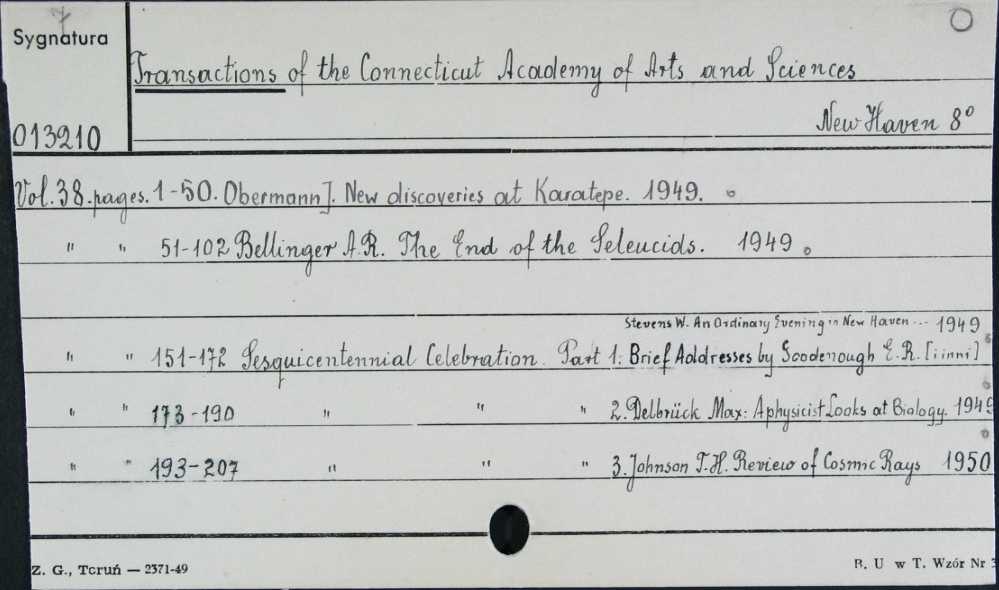 Sygnatura
Transactions of the Connecticut Academy of Arts and Sciences
013210
New Haven 8°
Vol. 38. pages. 1-50. Obermann J. New discoveries at Karatepe. 1949.
" " 51-102 Bellinger A.R. The End of the Seleucids. 1949
Stevens W. An Ordinary Evening in New Haven... 1949
" " 151-172 Sesquicentennial Celebration. Part 1: Brief Addresses by Goodenough E.R. [i inni]
" " 173-190 " " " 2. Delbrück Max: A physicist Looks at Biology. 1949
" " 193-207 " " " 3. Johnson T.H. Review of Cosmic Rays 1950
Z. G., Toruń — 2371-49
B. U w T. Wzór Nr 3